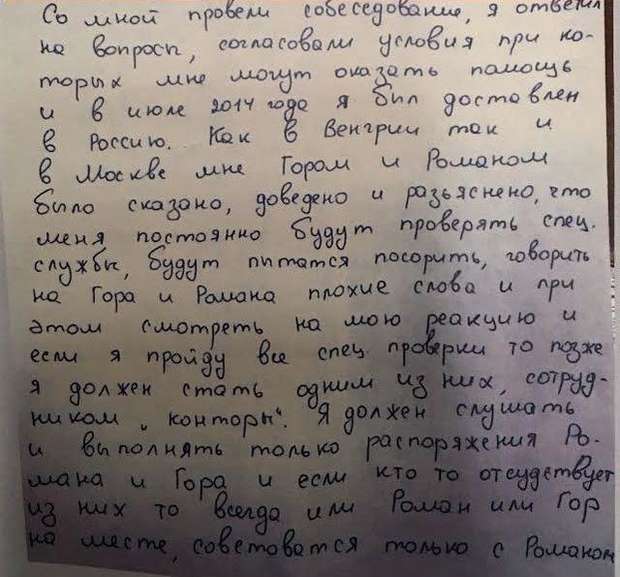 Со мной провели собеседование, я ответил
на вопросы, согласовали условия при ко-
торых мне могут оказать помощь
и в июле 2014 года я был доставлен
в Россию. Как в Венгрии так и
в Москве мне Гором и Романом
было сказано, доведено и разьяснено, что
меня постоянно будут проверять спец.
службы, будут питатся посорить, говорить
на Гора и Романа плохие слова и при
этом смотреть на мою реакцию и
если я пройду все спец проверки то позже
я должен стать одним из них, сотруд-
ником „конторы“. Я должен слушать
и выполнять только распоряжения Ро-
мана и Гора и если кто то отсудствует
из них то всегда или Роман или Гор
на месте, советоватся только с Романом